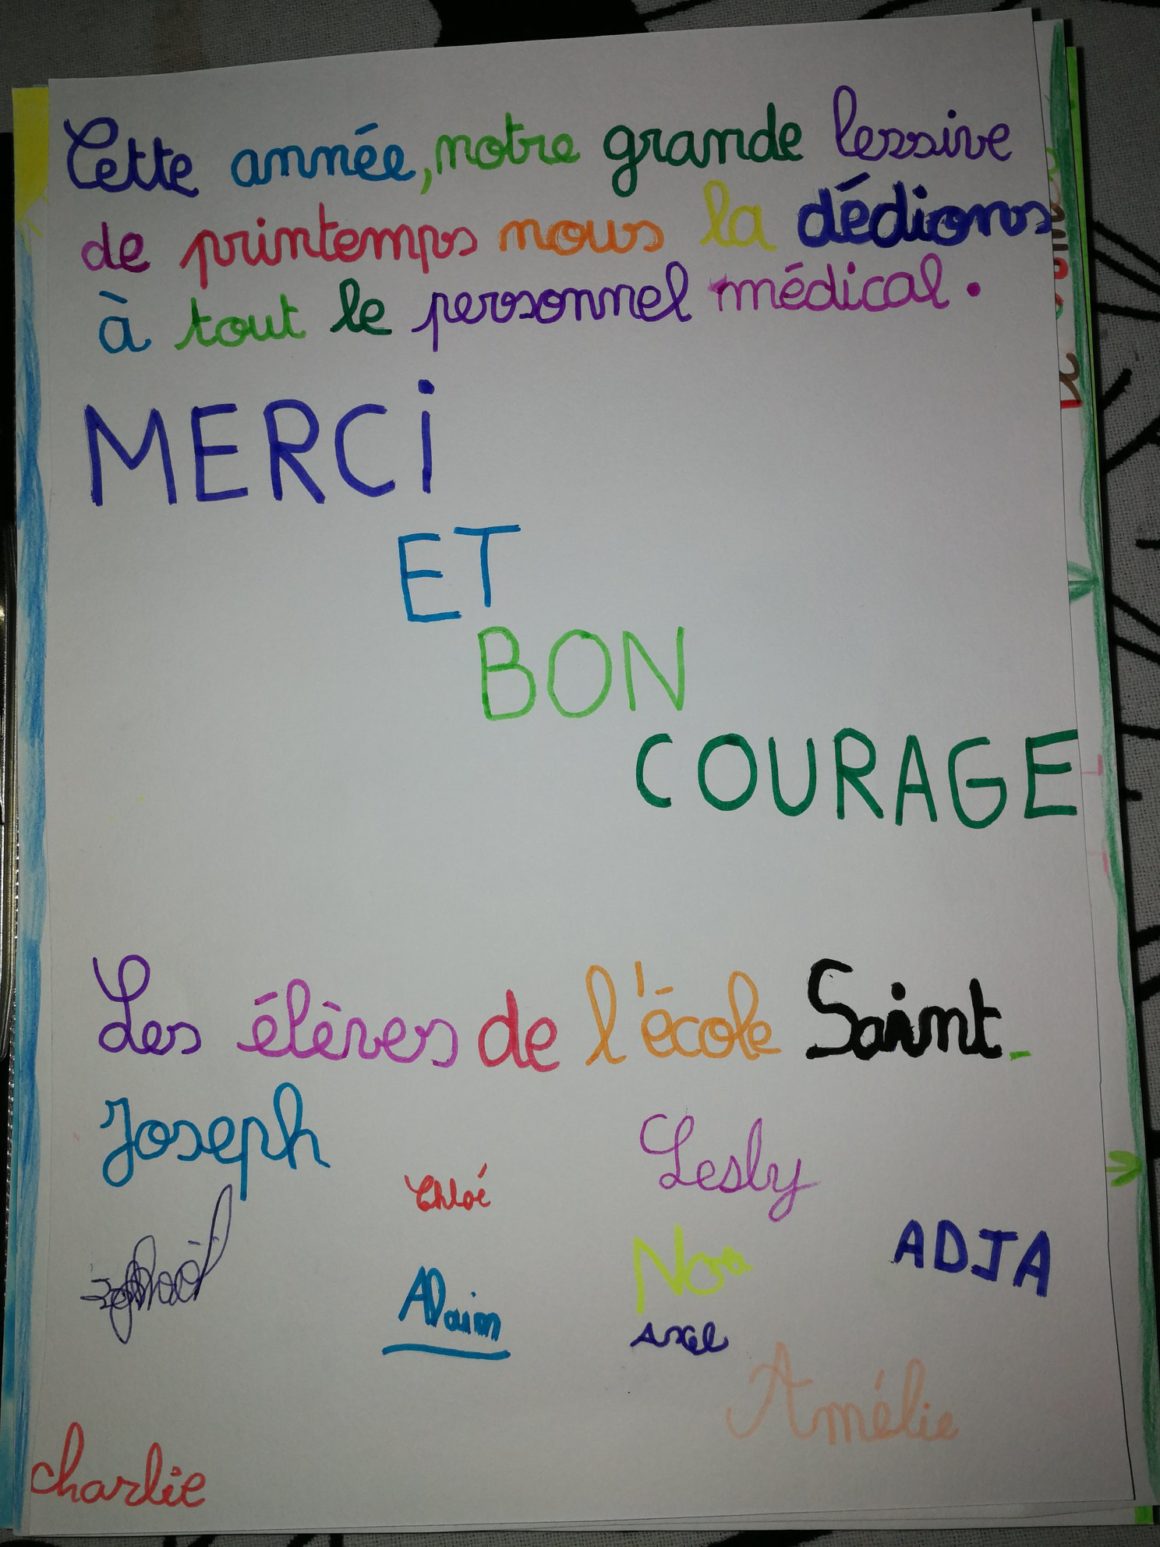 Cette année, notre grande lessive
de printemps nous la dédions
à tout le personnel médical.
MERCi
ET
BON
COURAGE
Les élèves de l'école Saint-
Joseph
Lesly
Chloé
ADJA
Noa
Alouin
Axel
Amélie
charlie